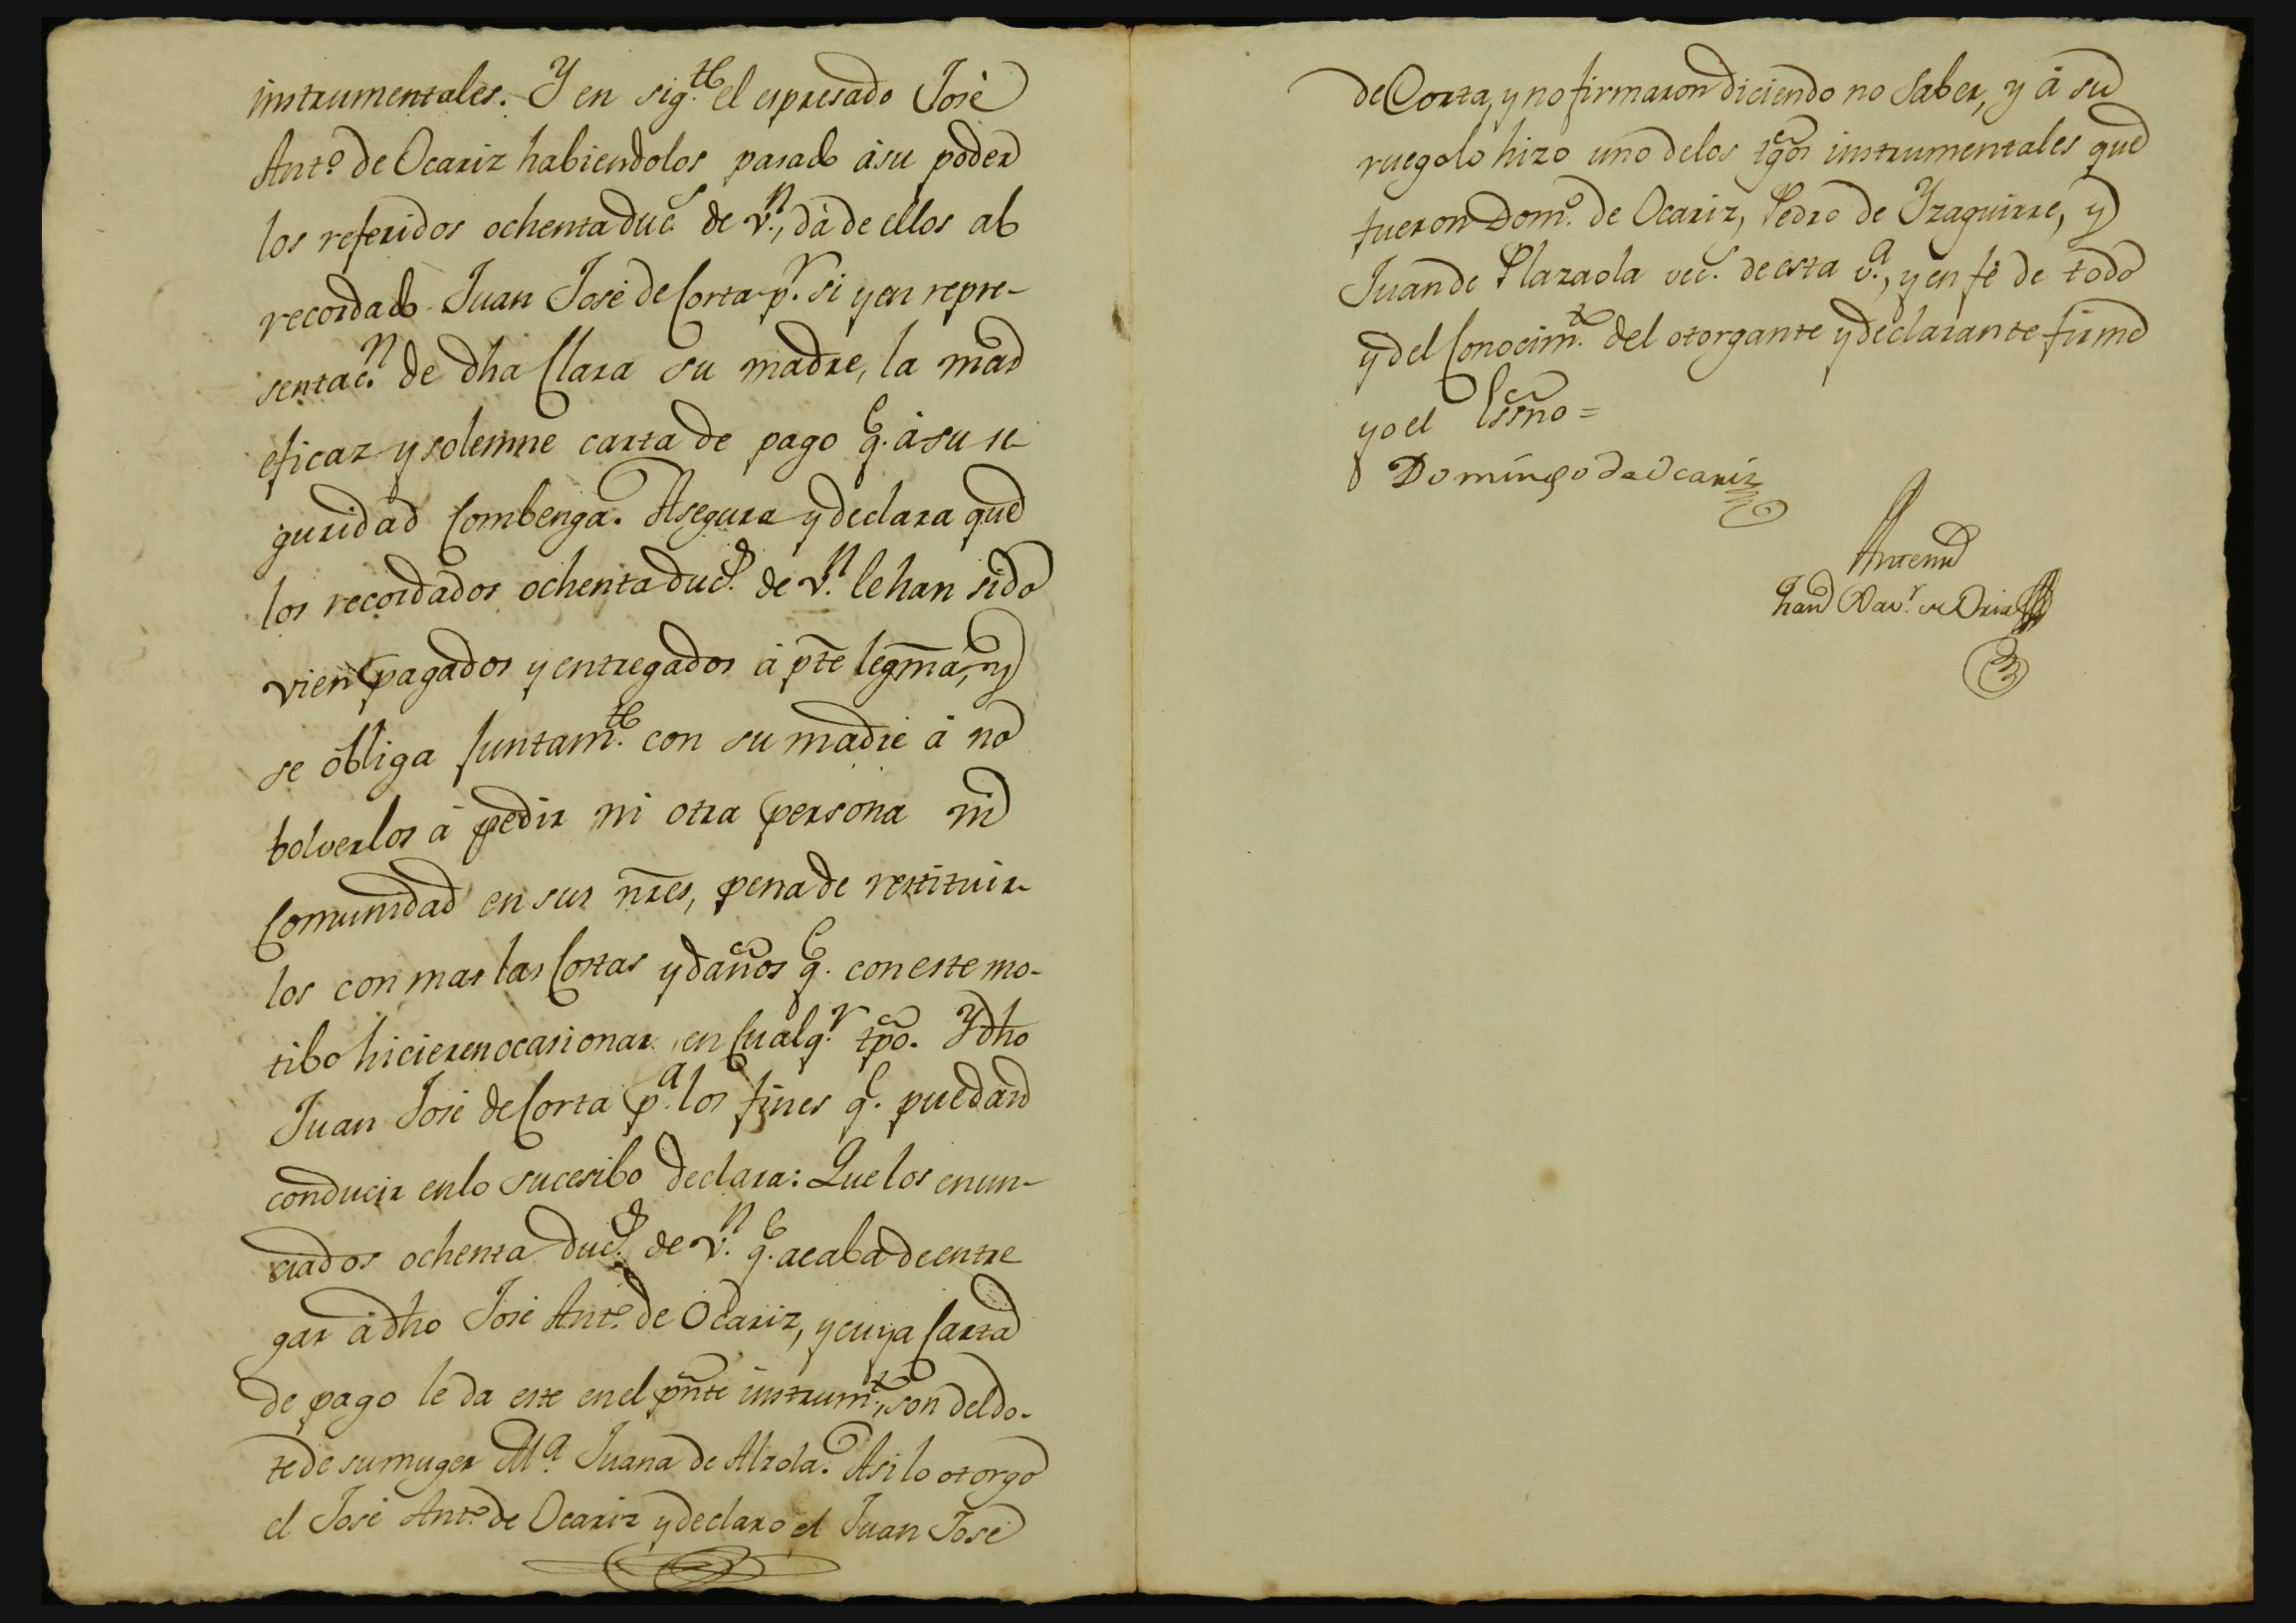 instrumentales. Y en sig.te el espresado José
Ant.o de Ocariz habiendolos pasado á su poder
los referidos ochenta duc.s de v.n, dá de ellos al
recordado Juan José de Corta p.r si y en repre-
sentac.n de dha Clara su madre, la mas
eficaz y solemne carta de pago q.e á su se-
guridad combenga. Asegura y declara que
los recordados ochenta duc.s de v.n le han sido
vien pagados y entregados á pte legma, y
se obliga juntam.te con su madre á no
bolverlos á pedir ni otra persona ni
Comunidad en sus nres, pena de restituir-
los con mas las Costas y daños q.e con este mo-
tibo hicieren ocasionar en cualq.r tpo. Y dho
Juan José de Corta p.a los fines q.e puedan
conducir en lo sucesibo declara: Que los enun-
ciados ochenta duc.s de v.n q.e acaba de entre
gar á dho José Ant.o de Ocariz, y cuya Carta
de pago le da este en el pnte instrum.to, son del do-
te de su muger M.a Juana de Alzola. Asi lo otorgo
el José Ant.o de Ocariz y declaro el Juan José
de Corta, y no firmaron diciendo no saber, y á su
ruego lo hizo uno de los tgos instrumentales que
fueron Dom.o de Ocariz, Pedro de Yzaguirre, y
Juan de Plazaola vec.s de esta v.a, y en fé de todo
y del Conocim.to del otorgante y declarante firme
yo el Essno =
Domingo de Ocariz
Antemi